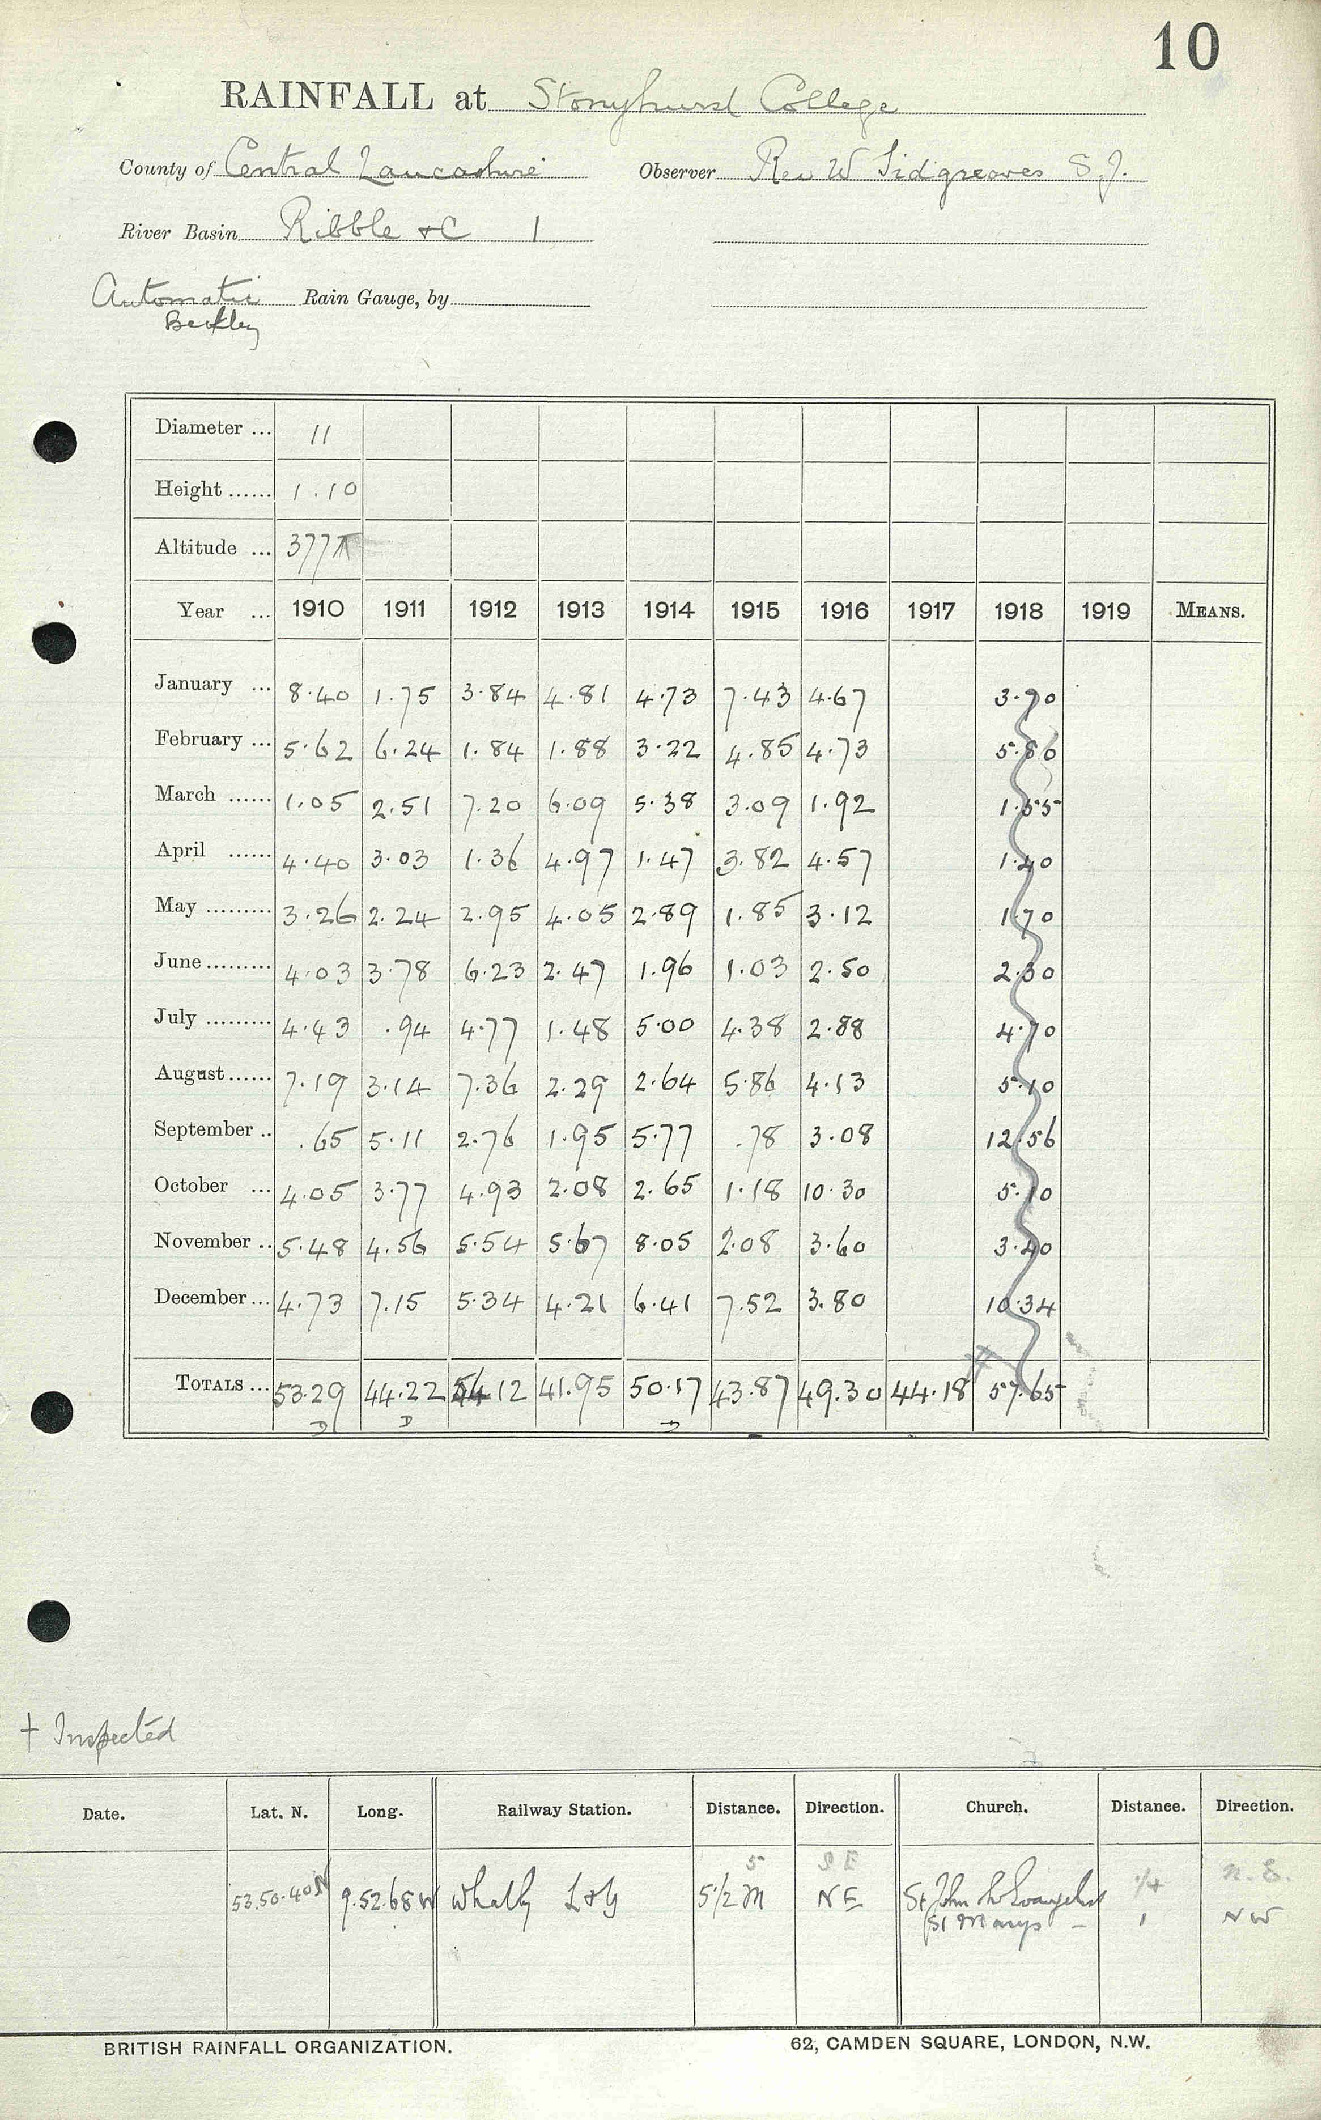 10
RAINFALL at Stonyhurst College
County of Central Lancashire Observer Rev W Sidgreaves S.J.
River Basin Ribble &C 1
Automatic Rain Gauge, by
Beckley
Diameter ... 11
Height ...... 1.10
Altitude ... 377
Year ... 1910 1911 1912 1913 1914 1915 1916 1917 1918 1919 MEANS.
January ... 8.40 1.75 3.84 4.81 4.73 7.43 4.67 3.70
February ... 5.62 6.24 1.84 1.88 3.22 4.85 4.73 5.80
March ...... 1.05 2.51 7.20 6.09 5.38 3.09 1.92 1.55
April ...... 4.40 3.03 1.36 4.97 1.47 3.82 4.57 1.40
May ......... 3.26 2.24 2.95 4.05 2.89 1.85 3.12 1.70
June ......... 4.03 3.78 6.23 2.47 1.96 1.03 2.50 2.30
July ......... 4.43 .94 4.77 1.48 5.00 4.38 2.88 4.70
August ...... 7.19 3.14 7.36 2.29 2.64 5.86 4.13 5.10
September .. .65 5.11 2.76 1.95 5.77 .78 3.08 12.56
October ... 4.05 3.77 4.93 2.08 2.65 1.18 10.30 5.10
November .. 5.48 4.56 5.54 5.67 8.05 2.08 3.60 3.40
December ... 4.73 7.15 5.34 4.21 6.41 7.52 3.80 10.34
TOTALS ... 53.29 44.22 54.12 41.95 50.17 43.87 49.30 44.18 57.65
† Inspected
Date. Lat. N. Long. Railway Station. Distance. Direction. Church. Distance. Direction.
5 S E 1/4 N.E.
53.50.40N 9.52.68W Whally L&Y 5 1/2 M NE St John the Evangelist
St Marys - 1 NW
BRITISH RAINFALL ORGANIZATION. 62, CAMDEN SQUARE, LONDON, N.W.